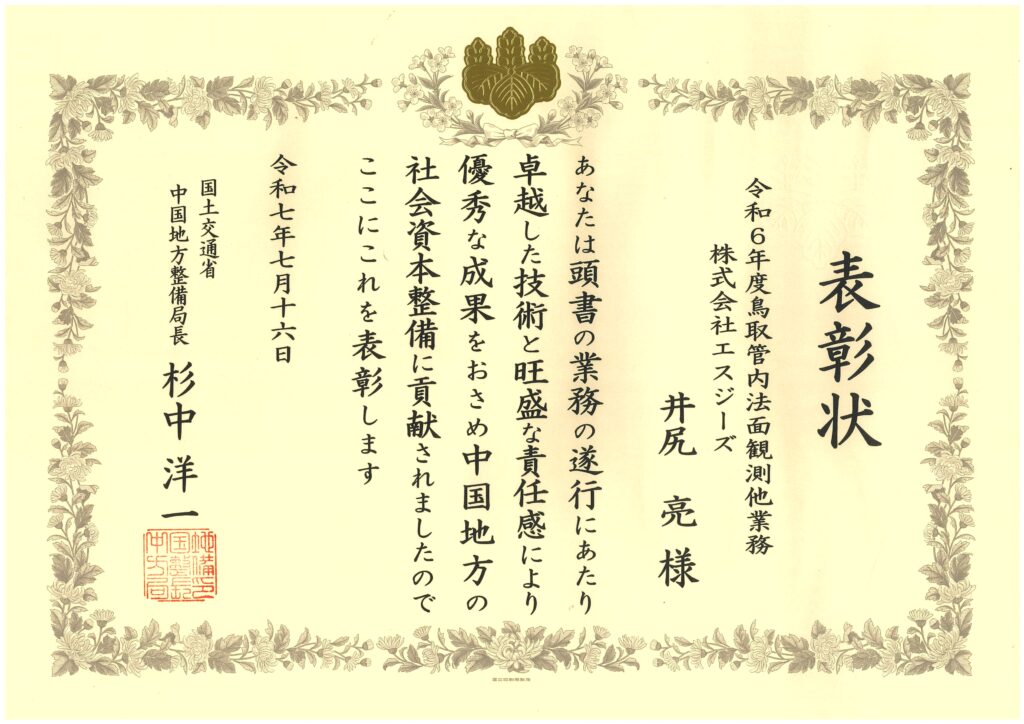 表彰状
令和６年度鳥取管内法面観測他業務
株式会社エスジーズ
井尻　亮　様
あなたは頭書の業務の遂行にあたり
卓越した技術と旺盛な責任感により
優秀な成果をおさめ中国地方の
社会資本整備に貢献されましたので
ここにこれを表彰します
令和七年七月十六日
国土交通省
中国地方整備局長　杉中　洋一